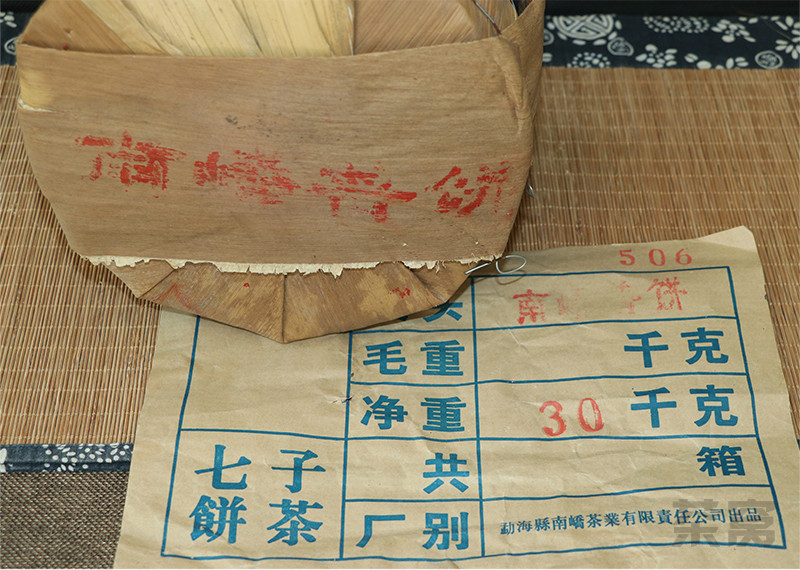 南嶠青餅
506
南嶠青餅
毛重 千克
净重 30 千克
共 箱
七子餅茶
厂别 勐海縣南嶠茶業有限責任公司出品
茶窝